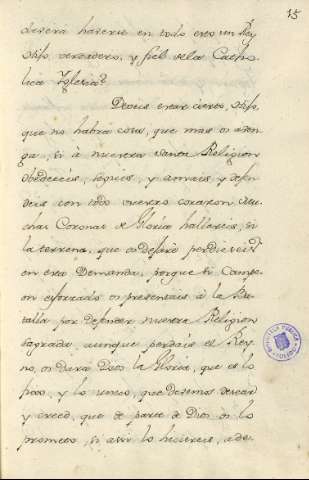 15
devera haverse en todo eres un Rey
Hijo verdadero, y fiel de la Catho-
lica Yglesia?
Deveis estar cierto, Hijo,
que no habra cosa, que mas os aten-
ga, si à nuestra santa Religion
obedeceis, seguis, y amais, y defen-
deis con todo vuestro corazon
chas Coronas de Gloria hallareis, si
la terrena, que os dejaré perdiereis
en esta Demanda, porque si Campe-
on esforzado os presentais à la Ba-
talla por defender nuestra Religion
sagrada, aunque perdais el Rey-
no, os dara Dios la Gloria, que es lo
mas, y lo unico, que devemos desear
y creed, que de parte de Dios os lo
prometo, si assi lo hiciereis, ade-
BIBLIOTECA PUBLICA
TOLEDO